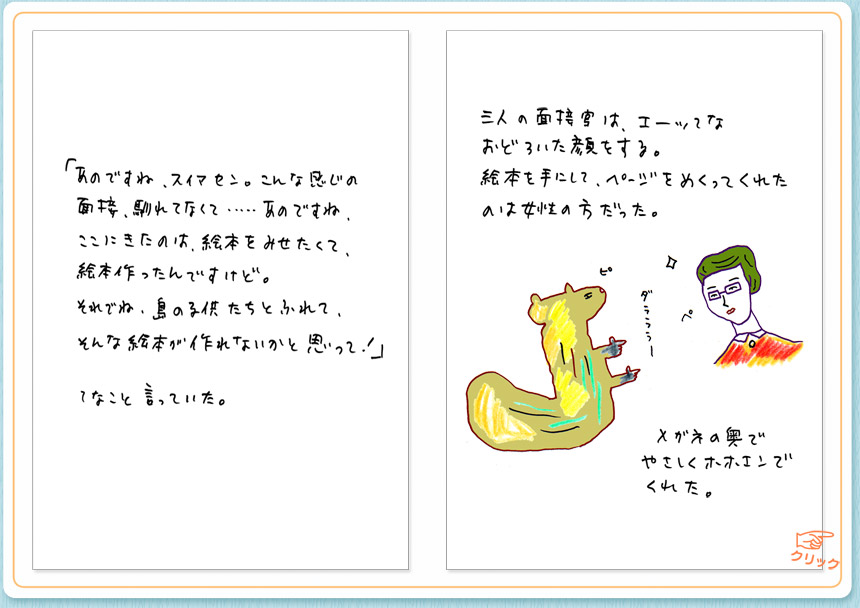 「あのですね、スイマセン。こんな感じの
面接、馴れてなくて……あのですね、
ここにきたのは、絵本をみせたくて、
絵本作ったんですけど。
それでね、島の子供たちとふれて、
そんな絵本が作れないかと思って!」
てなこと言っていた。
三人の面接官は、エーッてな
おどろいた顔をする。
絵本を手にして、ページをめくってくれた
のは女性の方だった。
ピ
ダラララー
ペ
メガネの奥で
やさしくホホエンで
くれた。
クリック